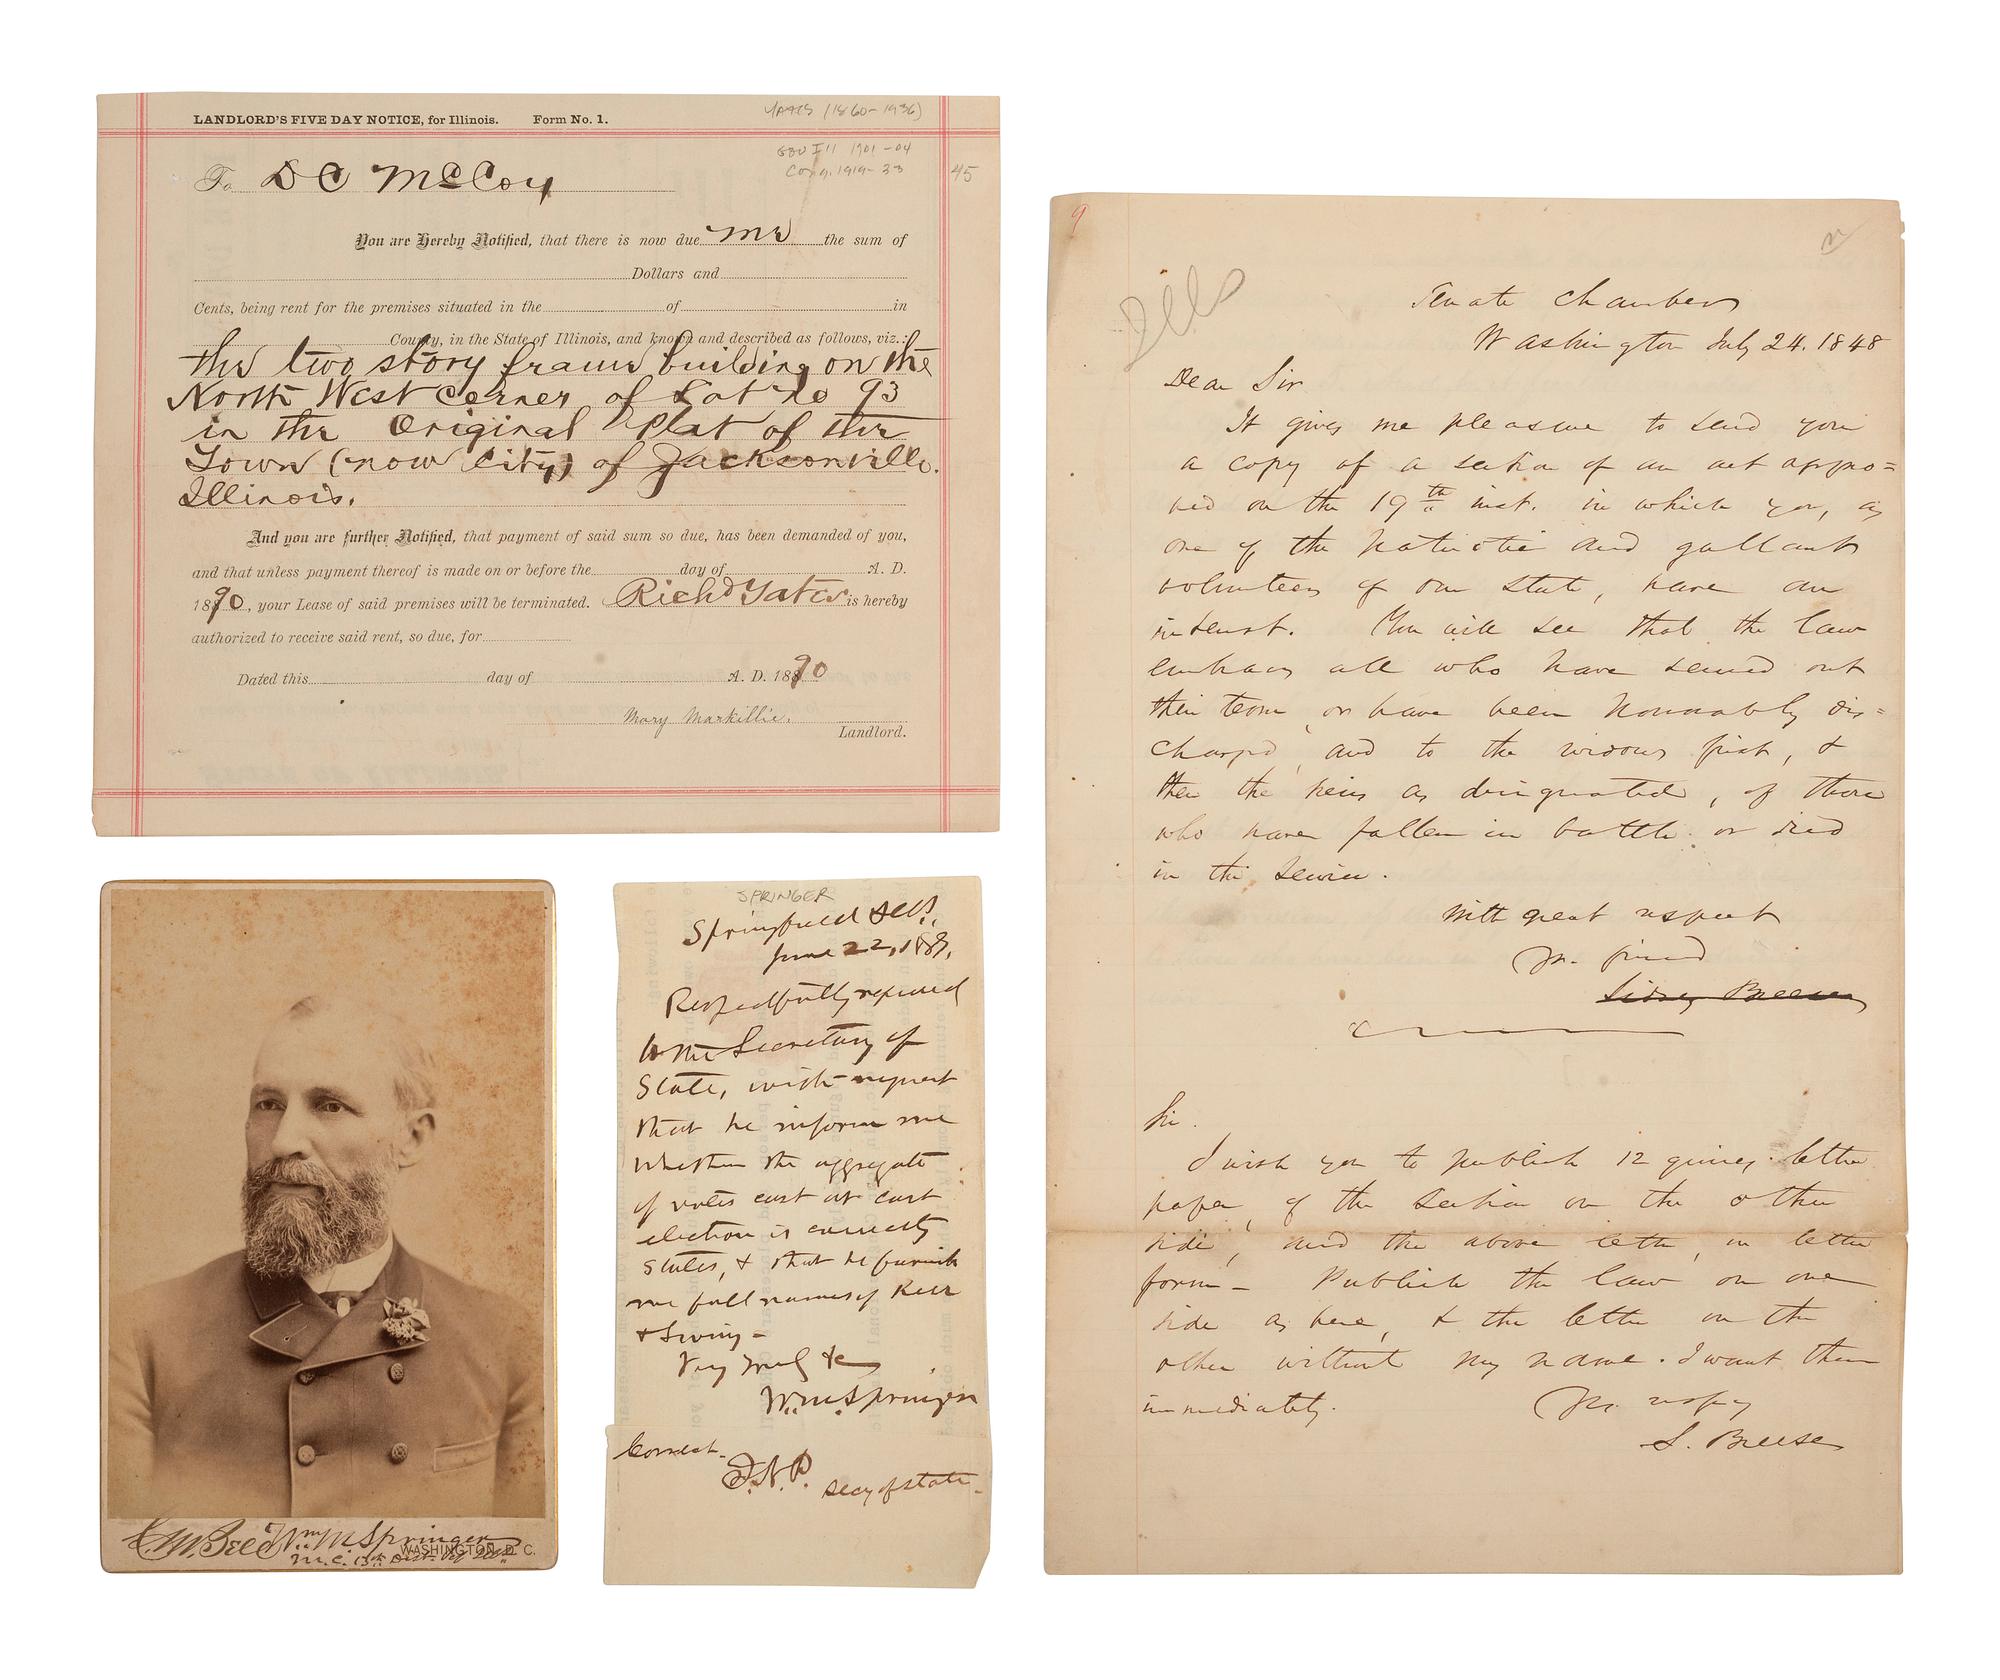 LANDLORD'S FIVE DAY NOTICE, for Illinois. Form No. 1.
YATES (1860-1936)
GOV Ill 1901-04
Cong. 1919-33
45
To D C McCoy
You are Hereby Notified, that there is now due me the sum of
Dollars and
Cents, being rent for the premises situated in the of in
County, in the State of Illinois, and known and described as follows, viz.:
the two story frame building on the
North West corner of Lot No 93
in the Original Plat of the
Town (now City) of Jacksonville.
Illinois.
And you are further Notified, that payment of said sum so due, has been demanded of you,
and that unless payment thereof is made on or before the day of A. D.
1890, your Lease of said premises will be terminated. Richd Yates is hereby
authorized to receive said rent, so due, for
Dated this day of A. D. 1890
Mary Markillie.
Landlord.
C.M. Bell
Wm M Springer
WASHINGTON, D. C.
M.C. 13th Dist. of Ills
SPRINGER
Springfield Ills.,
June 22, 188
Respectfully referred
to the Secretary of
State, with request
that he inform me
whether the aggregate
of votes cast at last
election is correctly
states, & that he furnish
me full names of Kerr
&
Very Truly &c
Wm. M. Springer
Correct.
J.N.P. Secy of state.
9
Ills
Senate Chamber
Washington July 24. 1848
Dear Sir
It gives me pleasure to send you
a copy of a section of an act appro=
ved on the 19th inst. in which you, as
one of the patriotic and gallant
volunteers of our State, have an
interest. You will see that the law
embraces all who have served out
their term, or have been honorably dis=
charged, and to the widows first, &
then the heirs as designated, of those
who have fallen in battle or died
in the service.
With great respect
Yr. friend
Sidney Breese
Sir.
I wish you to publish 12 quires letter
paper, of the section on the other
side, and the above letter, in letter
form - Publish the law on one
side as here, & the letter on the
other without my name. I want them
immediately.
Yr. respy
S. Breese